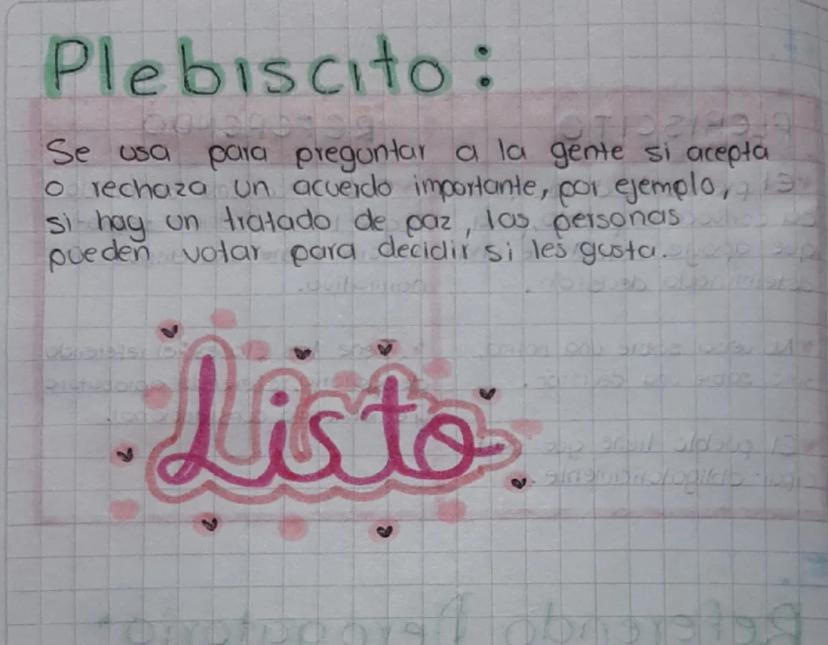 Plebiscito:
Se usa para preguntar a la gente si acepta
o rechaza un acuerdo importante, por ejemplo,
si hay un tratado de paz, las personas
pueden votar para decidir si les gusta.
Listo